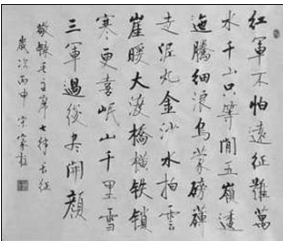 紅軍不怕遠征難萬
水千山只等閒五嶺逶
迤騰細浪烏蒙磅礴
走泥丸金沙水拍雲
崖暖大渡橋橫铁鎖
寒更喜岷山千里雪
三軍過後尽開顏
敬錄毛主席七律長征
歲次丙申